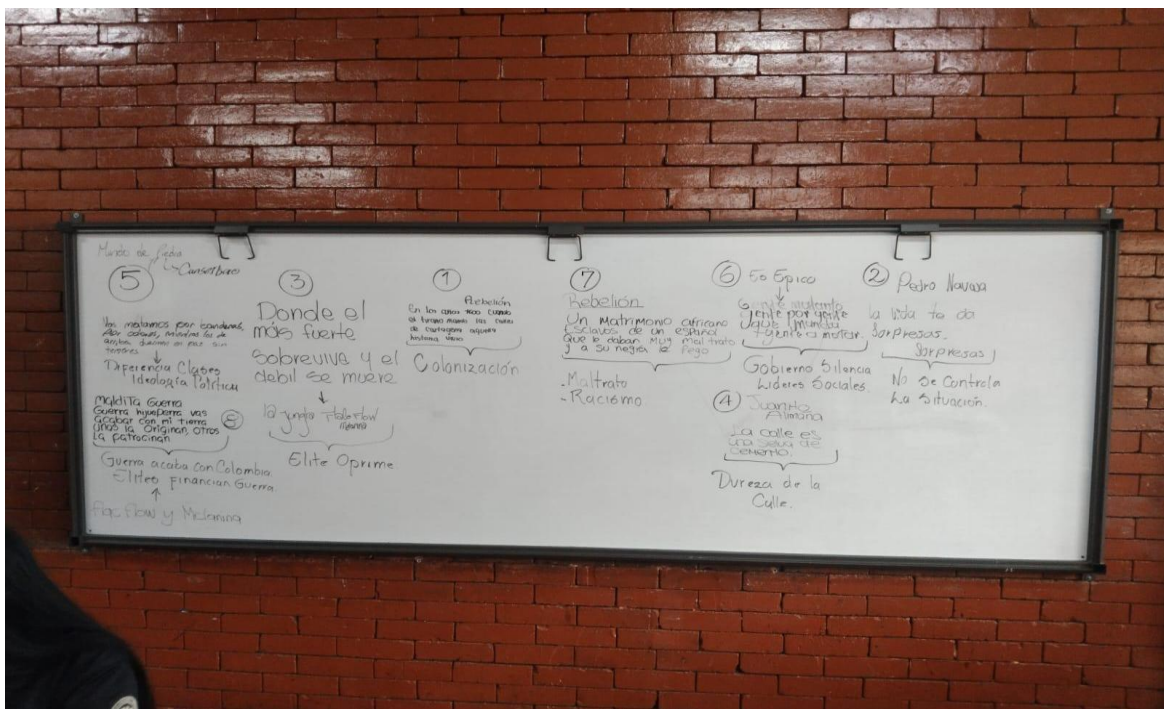 Mundo de Piedra
Canserbero
5
Nos matamos por banderas
Por colores, mientras los de
arriba duermen en paz sin
temores
Diferencia Clases
Ideología Política
Maldita Guerra
Guerra hijueperra vas
acabar con mi tierra
Unos la Originan, otros
La patrocinan
8
Guerra acaba con Colombia.
Elites Financian Guerra.
Flac Flow y Melamina
3
Donde el
más fuerte
Sobrevive y el
debil se muere
la jungla Flako Flow
Melamina
Elite Oprime
1
Rebelión
En los años 1600 cuando
el tirano mando las calles
de Cartagena aquella
historia vivio
Colonización
7
Rebelión
Un matrimonio africano
Esclavos de un español
Que le daban Muy mal trato
y a su negra le Pego
-Maltrato
-Racismo
6
Es Epico
gente por gente
que manda
gente a matar.
Gobierno Silencia
Lideres Sociales.
4
Juanito
Alimaña
La calle es
una selva de
cemento.
Dureza de la
Calle.
2
Pedro Navaja
la vida te da
Sorpresas.
Sorpresas
No Se Controla
La Situación.